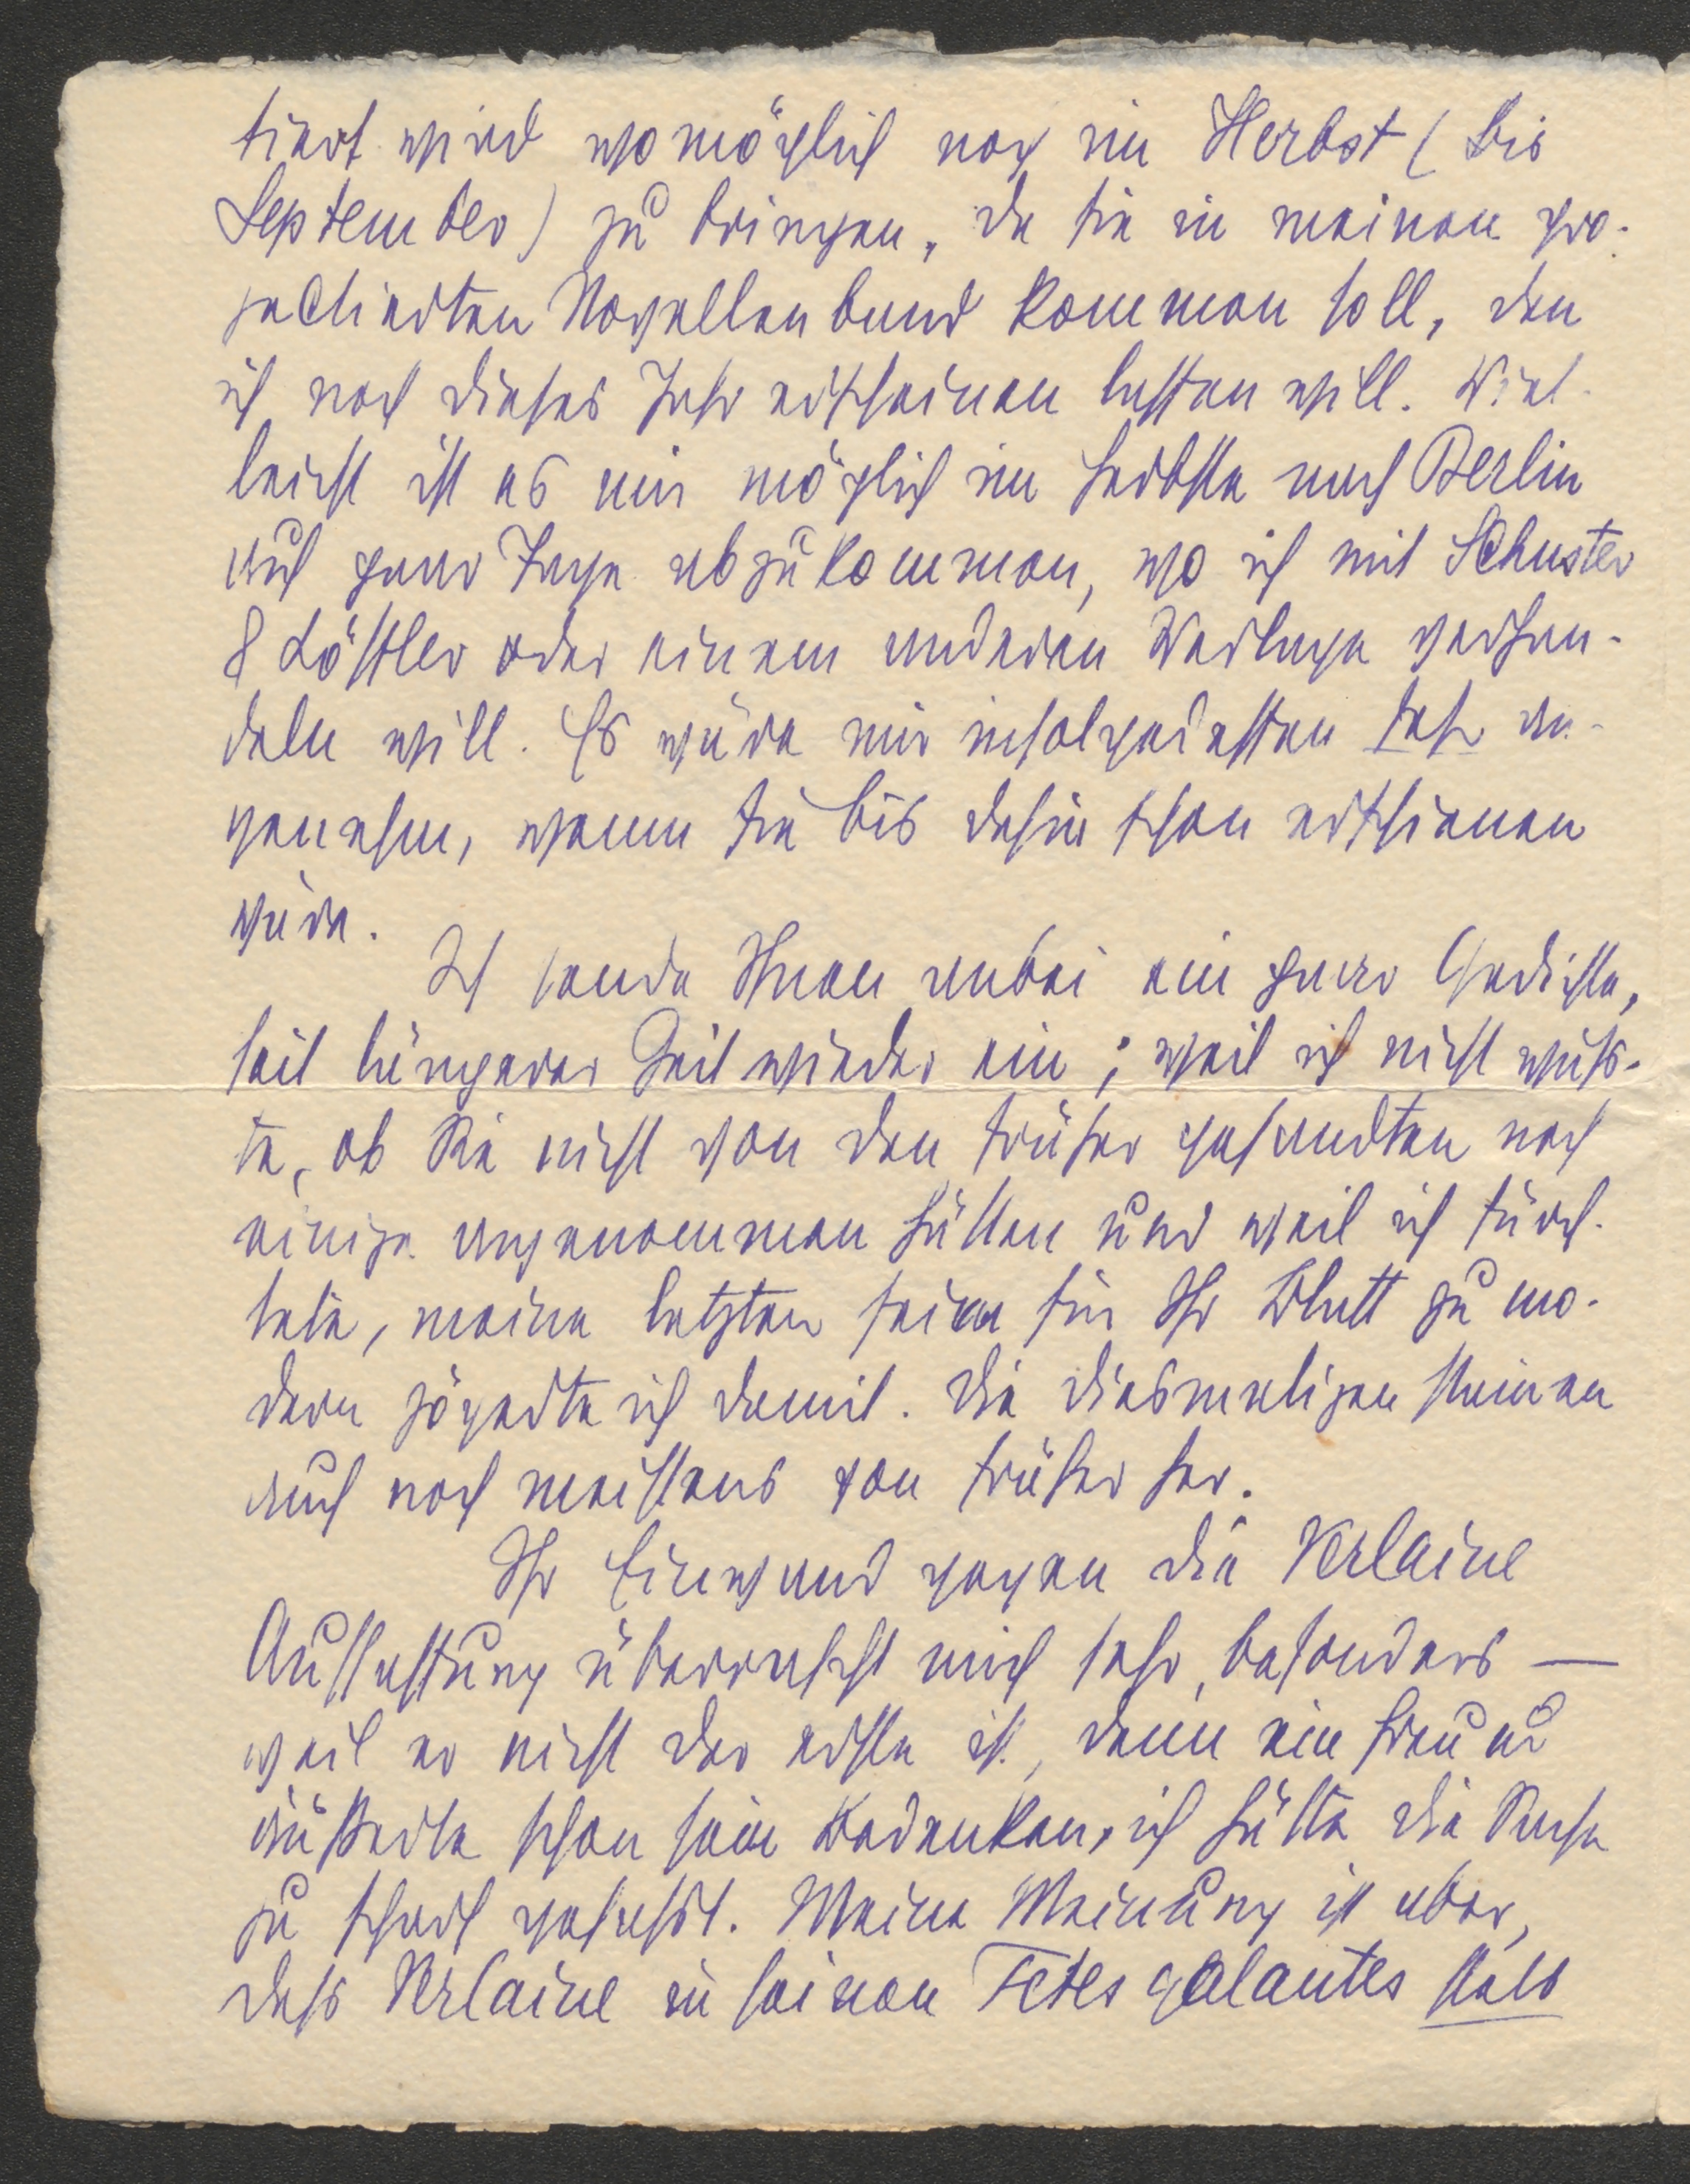 tiert wird womöglich noch im Herbst (bis
September) zu bringen, da sie in meinen pro-
jectierten Novellenband kommen soll, den
ich noch dieses Jahr erscheinen lassen will. Viel-
leicht ist es mir möglich im Herbste nach Berlin
auf paar Tage abzukommen, wo ich mit Schuster
& Löffler oder einem anderen Verlage verhan-
deln will. Es wäre mir infolgedessen sehr an-
genehm, wenn sie bis dahin schon erschienen
wäre.
Ich sende Ihnen anbei ein paar Gedichte,
seit längerer Zeit wieder ein; weil ich nicht wuss-
te, ob Sie nicht von den früher gesandten noch
einige angenommen hätten und weil ich fürch-
tete, meine letzten seien für Ihr Blatt zu mo-
dern zögerte ich damit. Die diesmaligen stammen
auch noch meistens von früher her.
Ihr Einwand gegen die Verlaine
Auffassung überrascht mich sehr, besonders —
weil er nicht der erste ist, denn ein Freund
äußerte schon sein Bedenken, ich hätte die Sache
zu scharf gefasst. Meine Meinung ist aber,
dass Verlaine in seinen Fetes galantes stets